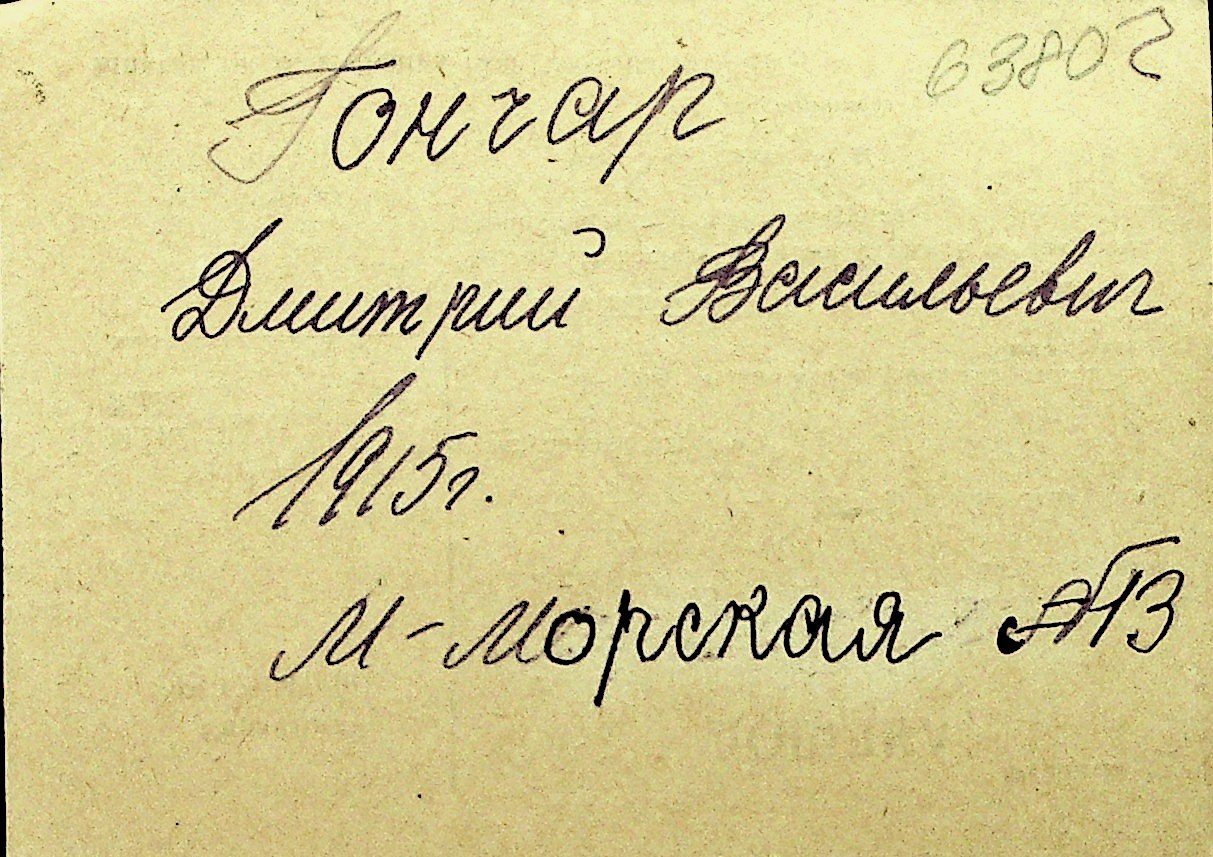 63802
Гончар
Дмитрий Васильевич
1915г.
М-Морская №13